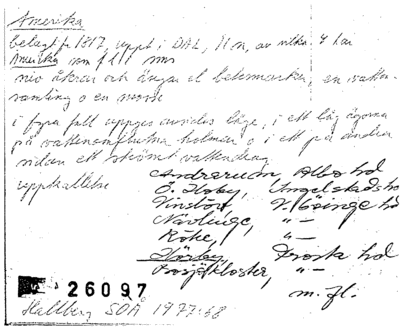 Amerika
belagt fr 1817, uppt i DAL, 11 n, av vilka 4 har
Amerika som f l i ns
niv åkrar och ängar el betesmarker, en vatten-
samling o en mosse
i fyra fall uppges avsides läge, i ett låg ägorna
på vattenomflutna holmen o i ett på andra
sidan ett strömt vattendrag
uppkallelse
Andrarum, Albo hd
Ö. Hoby, Ingelstads hd
Vinslöv, V. Göinge hd
Nävlinge, –"–
Röke, –"–
Hörby, Frosta hd
Bosjökloster, –"–
m. fl.
26097
Hallberg SOÅ 1977:68